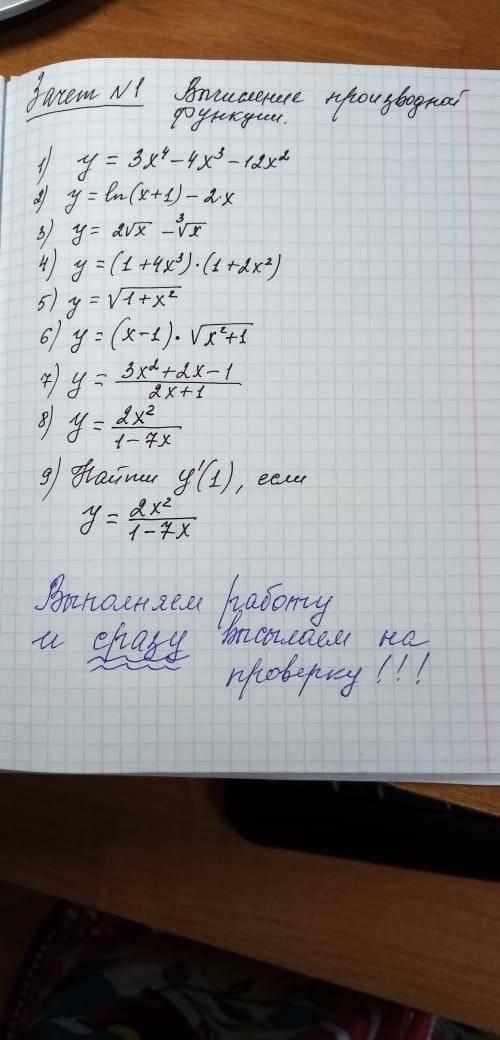 Зачет №1 Вычисление производной
функции.
1) y = 3x⁴ - 4x³ - 12x²
2) y = ln(x+1) - 2·x
3) y = 2√x - ∛x
4) y = (1+4x³)·(1+2x²)
5) y = √(1+x²)
6) y = (x-1)·√(x²+1)
7) y = (3x²+2x-1)/(2x+1)
8) y = 2x²/(1-7x)
9) Найти y'(1), если
y = 2x²/(1-7x)
Выполняем работу
и сразу высылаем на
проверку!!!